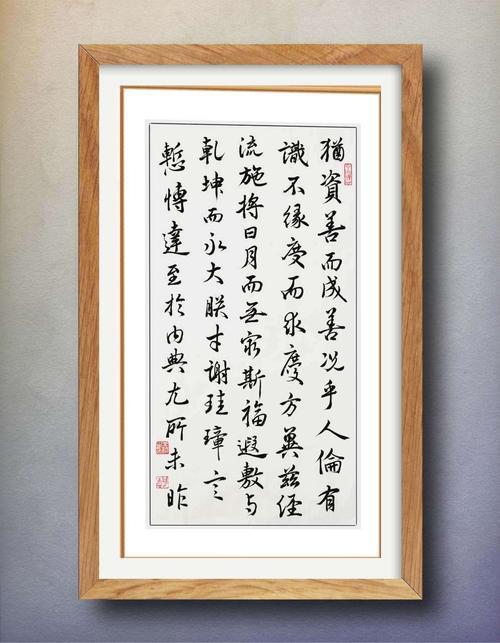 猶資善而成善况乎人倫有
識不緣慶而求慶方冀兹經
流施將日月而无窮斯福遐敷与
乾坤而永大朕才謝珪璋言
慙愽達至於内典尤所未昨